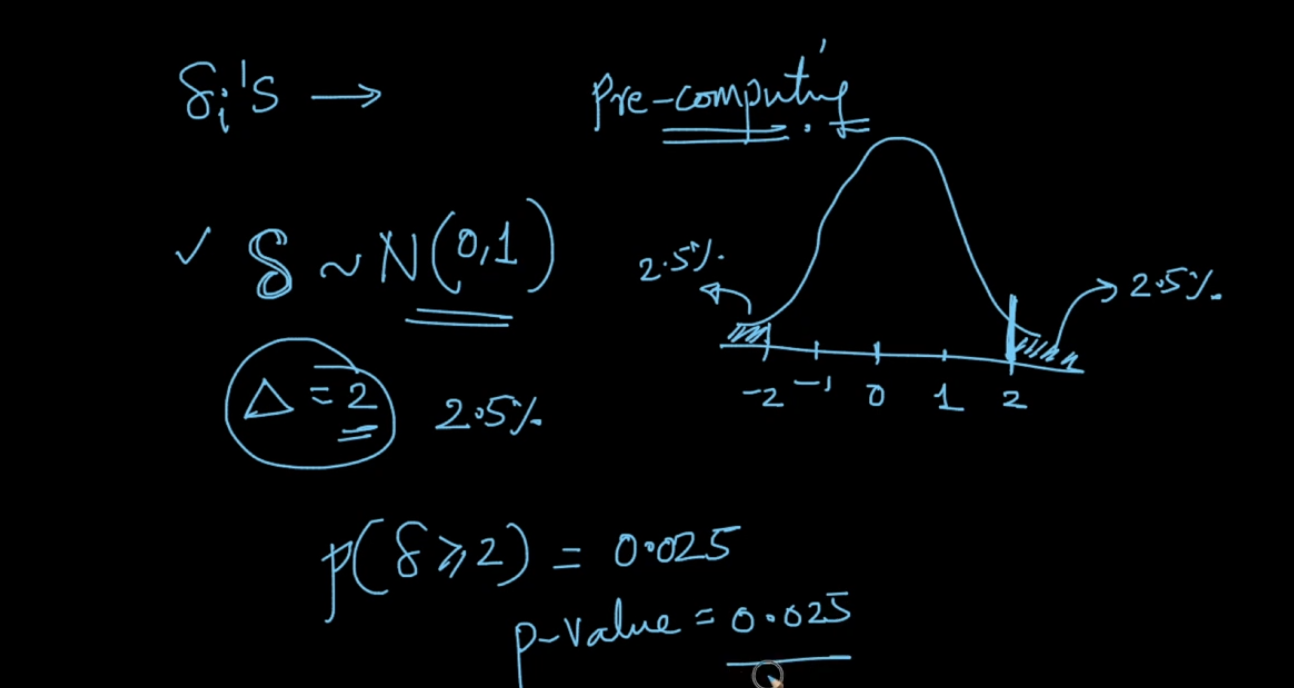 δi's →
Pre-computing
✓ δ ~ N(0,1)
2.5%
2.5%
-2 -1 0 1 2
Δ = 2 2.5%
P(δ ⩾ 2) = 0.025
p-value = 0.025